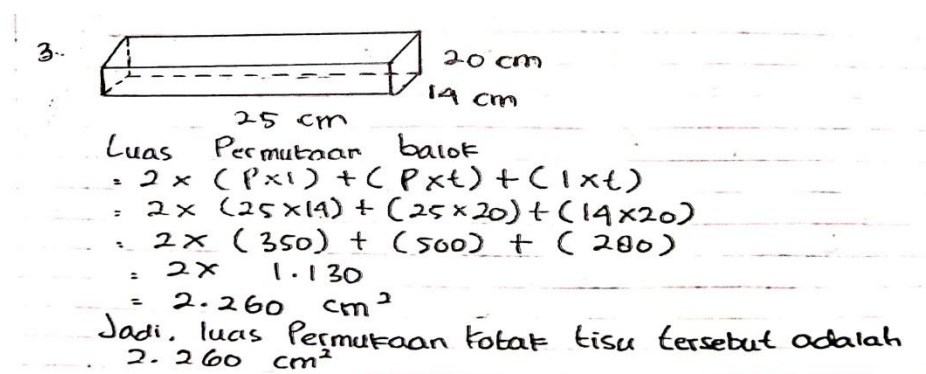 3.
20 cm
14 cm
25 cm
Luas Permukaan balok
= 2 x (Pxl) + (Pxt) + (lxt)
= 2x (25x14) + (25x20) + (14x20)
= 2x (350) + (500) + (280)
= 2x 1.130
= 2.260 cm²
Jadi, luas Permukaan kotak tisu tersebut adalah
2.260 cm²